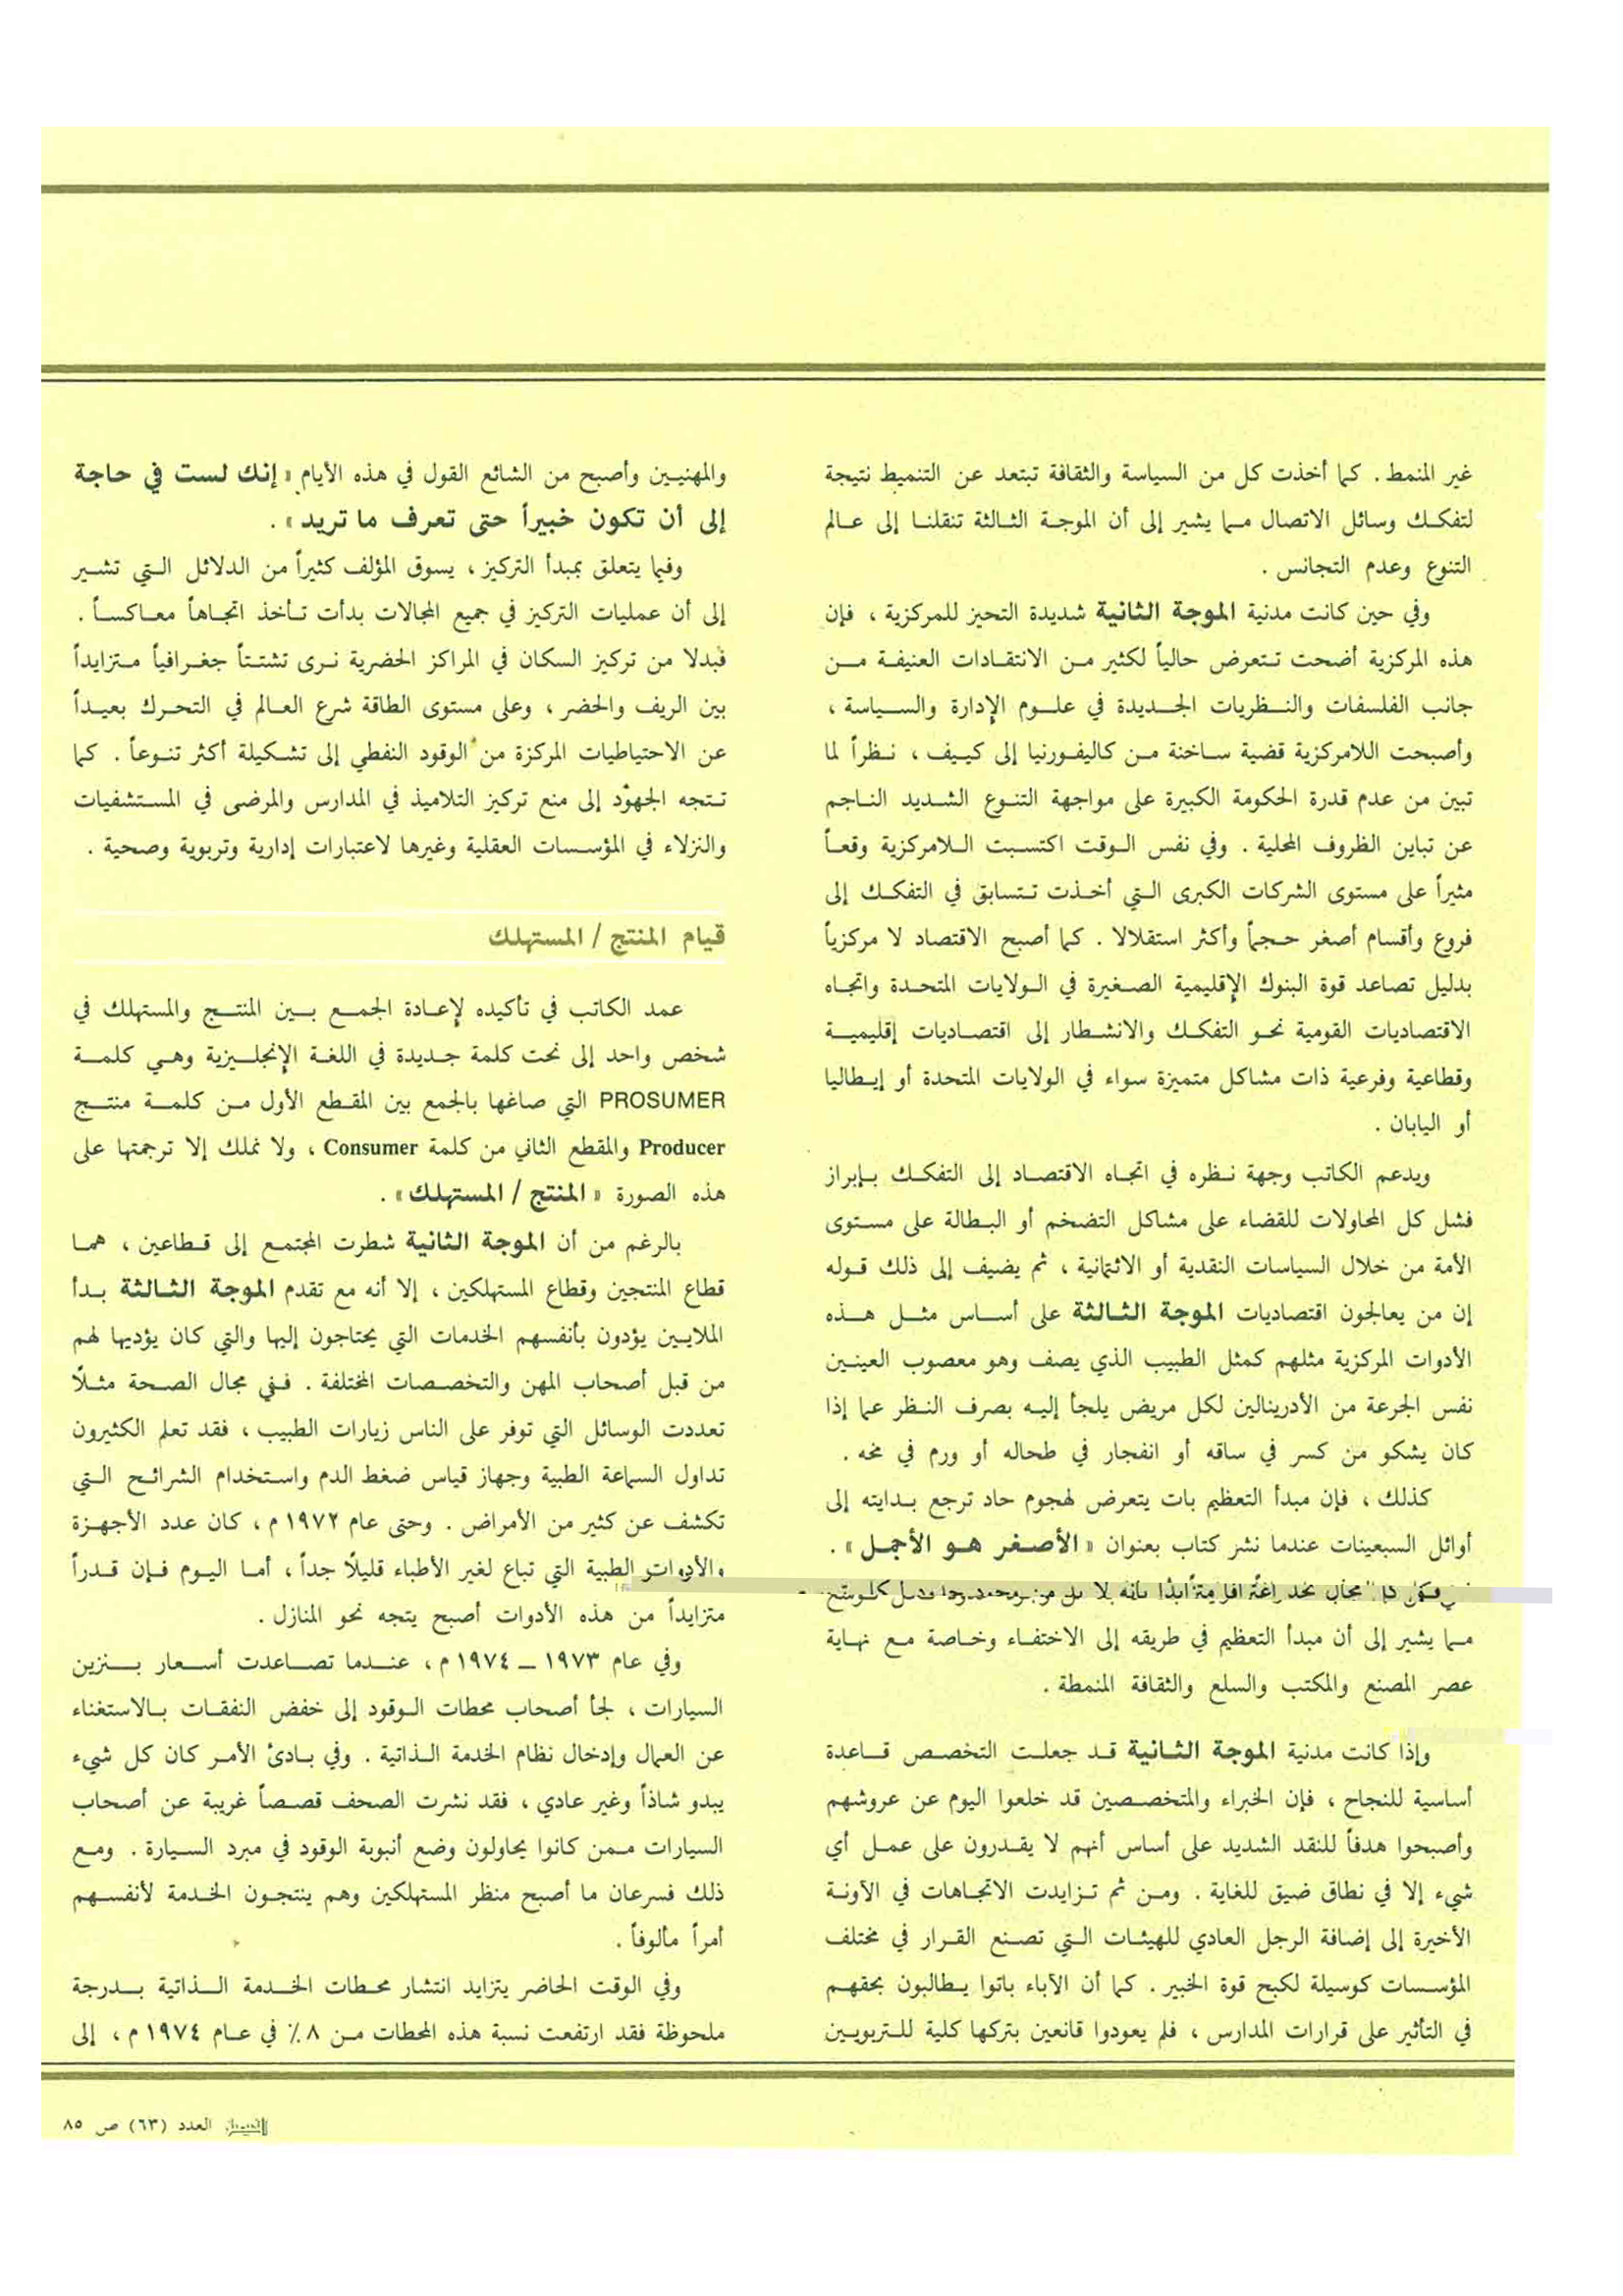 غير المنمط . كما أخذت كل من السياسة والثقافة تبتعد عن التنميط نتيجة
لتفكك وسائل الاتصال مما يشير إلى أن الموجة الثالثة تنقلنا إلى عالم
التنوع وعدم التجانس .
وفي حين كانت مدنية الموجة الثانية شديدة التحيز للمركزية ، فإن
هذه المركزية أضحت تتعرض حالياً لكثير من الانتقادات العنيفة من
جانب الفلسفات والنظريات الجديدة في علوم الإدارة والسياسة ،
وأصبحت اللامركزية قضية ساخنة من كاليفورنيا إلى كييف ، نظراً لما
تبين من عدم قدرة الحكومة الكبيرة على مواجهة التنوع الشديد الناجم
عن تباين الظروف المحلية . وفي نفس الوقت اكتسبت اللامركزية وقعاً
مثيراً على مستوى الشركات الكبرى التي أخذت تتسابق في التفكك إلى
فروع وأقسام أصغر حجماً وأكثر استقلالا . كما أصبح الاقتصاد لا مركزياً
بدليل تصاعد قوة البنوك الإقليمية الصغيرة في الولايات المتحدة واتجاه
الاقتصاديات القومية نحو التفكك والانشطار إلى اقتصاديات إقليمية
وقطاعية وفرعية ذات مشاكل متميزة سواء في الولايات المتحدة أو إيطاليا
أو اليابان .
ويدعم الكاتب وجهة نظره في اتجاه الاقتصاد إلى التفكك بإبراز
فشل كل المحاولات للقضاء على مشاكل التضخم أو البطالة على مستوى
الأمة من خلال السياسات النقدية أو الائتمانية ، ثم يضيف إلى ذلك قوله
إن من يعالجون اقتصاديات الموجة الثالثة على أساس مثل هذه
الأدوات المركزية مثلهم كمثل الطبيب الذي يصف وهو معصوب العينين
نفس الجرعة من الأدرينالين لكل مريض يلجأ إليه بصرف النظر عما إذا
كان يشكو من كسر في ساقه أو انفجار في طحاله أو ورم في مخه .
كذلك ، فإن مبدأ التعظيم بات يتعرض لهجوم حاد ترجع بدايته إلى
أوائل السبعينات عندما نشر كتاب بعنوان « الأصغر هو الأجمل » .
مجال نجد اعترافا متزايدا بانه لا بد من وجود
مما يشير إلى أن مبدأ التعظيم في طريقه إلى الاختفاء وخاصة مع نهاية
عصر المصنع والمكتب والسلع والثقافة المنمطة .
وإذا كانت مدنية الموجة الثانية قد جعلت التخصص قاعدة
أساسية للنجاح ، فإن الخبراء والمتخصصين قد خلعوا اليوم عن عروشهم
وأصبحوا هدفاً للنقد الشديد على أساس أنهم لا يقدرون على عمل أي
شيء إلا في نطاق ضيق للغاية . ومن ثم تزايدت الاتجاهات في الآونة
الأخيرة إلى إضافة الرجل العادي للهيئات التي تصنع القرار في مختلف
المؤسسات كوسيلة لكبح قوة الخبير . كما أن الآباء باتوا يطالبون بحقهم
في التأثير على قرارات المدارس ، فلم يعودوا قانعين بتركها كلية للتربويين
والمهنيين وأصبح من الشائع القول في هذه الأيام « إنك لست في حاجة
إلى أن تكون خبيراً حتى تعرف ما تريد » .
وفيما يتعلق بمبدأ التركيز ، يسوق المؤلف كثيراً من الدلائل التي تشير
إلى أن عمليات التركيز في جميع المجالات بدأت تأخذ اتجاهاً معاكساً .
فبدلا من تركيز السكان في المراكز الحضرية نرى تشتتاً جغرافياً متزايداً
بين الريف والحضر ، وعلى مستوى الطاقة شرع العالم في التحرك بعيداً
عن الاحتياطيات المركزة من الوقود النفطي إلى تشكيلة أكثر تنوعاً . كما
تتجه الجهود إلى منع تركيز التلاميذ في المدارس والمرضى في المستشفيات
والنزلاء في المؤسسات العقلية وغيرها لاعتبارات إدارية وتربوية وصحية .
قيام المنتج / المستهلك
عمد الكاتب في تأكيده لإعادة الجمع بين المنتج والمستهلك في
شخص واحد إلى نحت كلمة جديدة في اللغة الإنجليزية وهي كلمة
PROSUMER التي صاغها بالجمع بين المقطع الأول من كلمة منتج
Producer والمقطع الثاني من كلمة Consumer ، ولا نملك إلا ترجمتها على
هذه الصورة « المنتج / المستهلك » .
بالرغم من أن الموجة الثانية شطرت المجتمع إلى قطاعين ، هما
قطاع المنتجين وقطاع المستهلكين ، إلا أنه مع تقدم الموجة الثالثة بدأ
الملايين يؤدون بأنفسهم الخدمات التي يحتاجون إليها والتي كان يؤديها لهم
من قبل أصحاب المهن والتخصصات المختلفة . ففي مجال الصحة مثلاً
تعددت الوسائل التي توفر على الناس زيارات الطبيب ، فقد تعلم الكثيرون
تداول السماعة الطبية وجهاز قياس ضغط الدم واستخدام الشرائح التي
تكشف عن كثير من الأمراض . وحتى عام ١٩٧٢ م ، كان عدد الأجهزة
والأدوات الطبية التي تباع لغير الأطباء قليلاً جداً ، أما اليوم فإن قدراً
متزايداً من هذه الأدوات أصبح يتجه نحو المنازل .
وفي عام ١٩٧٣ – ١٩٧٤ م ، عندما تصاعدت أسعار بنزين
السيارات ، لجأ أصحاب محطات الوقود إلى خفض النفقات بالاستغناء
عن العمال وإدخال نظام الخدمة الذاتية . وفي بادئ الأمر كان كل شيء
يبدو شاذاً وغير عادي ، فقد نشرت الصحف قصصاً غريبة عن أصحاب
السيارات ممن كانوا يحاولون وضع أنبوبة الوقود في مبرد السيارة . ومع
ذلك فسرعان ما أصبح منظر المستهلكين وهم ينتجون الخدمة لأنفسهم
أمراً مألوفاً .
وفي الوقت الحاضر يتزايد انتشار محطات الخدمة الذاتية بدرجة
ملحوظة فقد ارتفعت نسبة هذه المحطات من ٨٪ في عام ١٩٧٤ م ، إلى
الفيصل العدد (٦٣) ص ٨٥